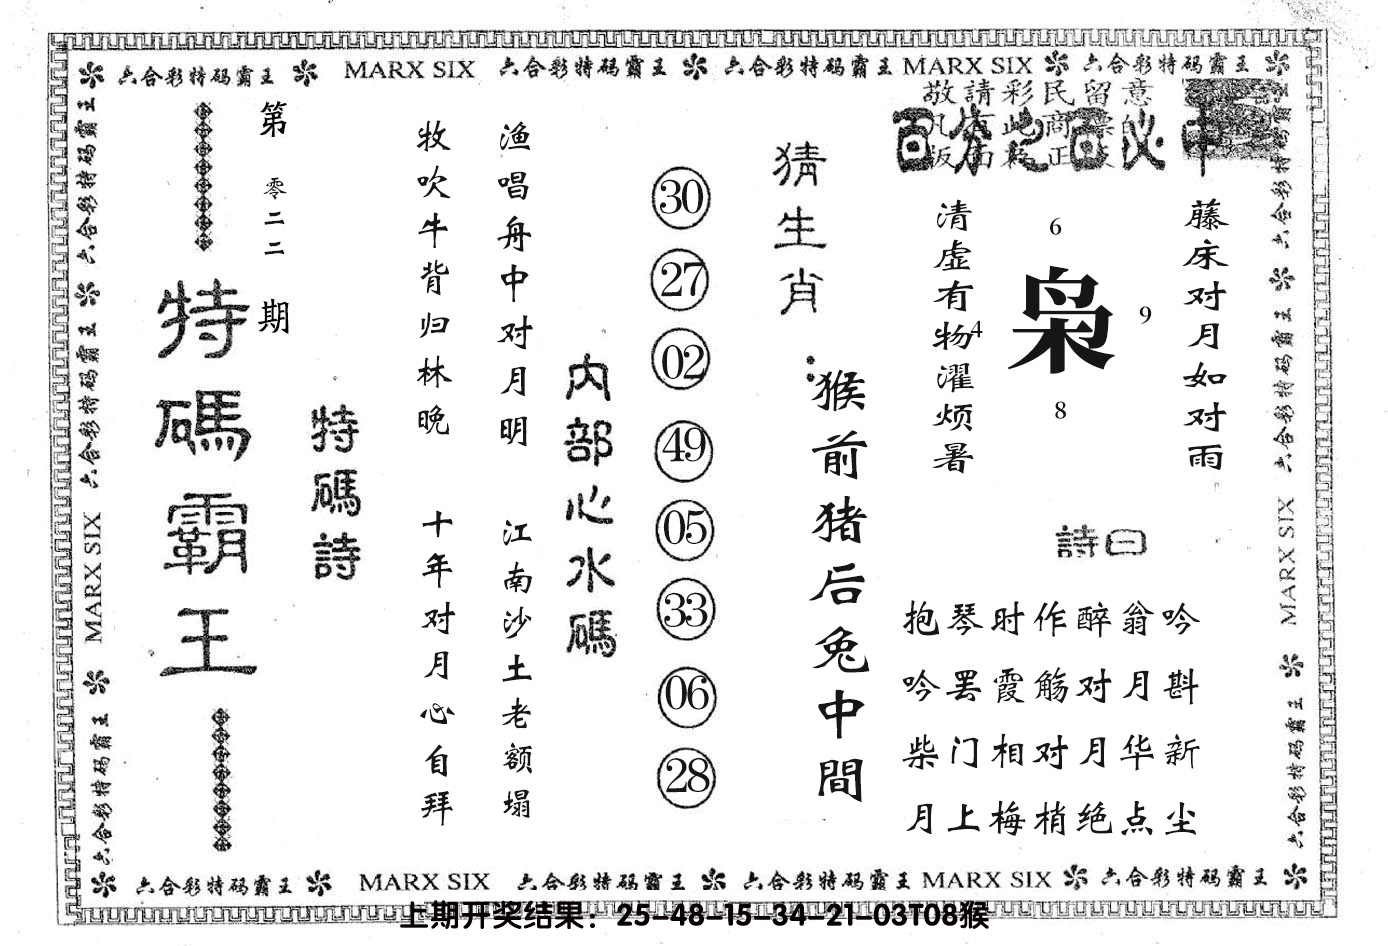 六合彩特码霸王 MARX SIX 六合彩特码霸王 六合彩特码霸王 MARX SIX 六合彩特码霸王
敬請彩民留意
百分之百必中
第零二二期
特碼霸王
特碼詩
牧吹牛背归林晚
十年对月心自拜
渔唱舟中对月明
江南沙土老额塌
内部心水碼
30
27
02
49
05
33
06
28
猜生肖:
猴前猪后兔中間
清虚有物濯烦暑
6
4
枭
9
8
藤床对月如对雨
詩曰
抱琴时作醉翁吟
吟罢霞觞对月斟
柴门相对月华新
月上梅梢绝点尘
六合彩特码霸王 MARX SIX 六合彩特码霸王
六合彩特码霸王 MARX SIX 六合彩特码霸王
六合彩特码霸王 MARX SIX 六合彩特码霸王 六合彩特码霸王 MARX SIX 六合彩特码霸王
上期开奖结果：25-48-15-34-21-03T08猴